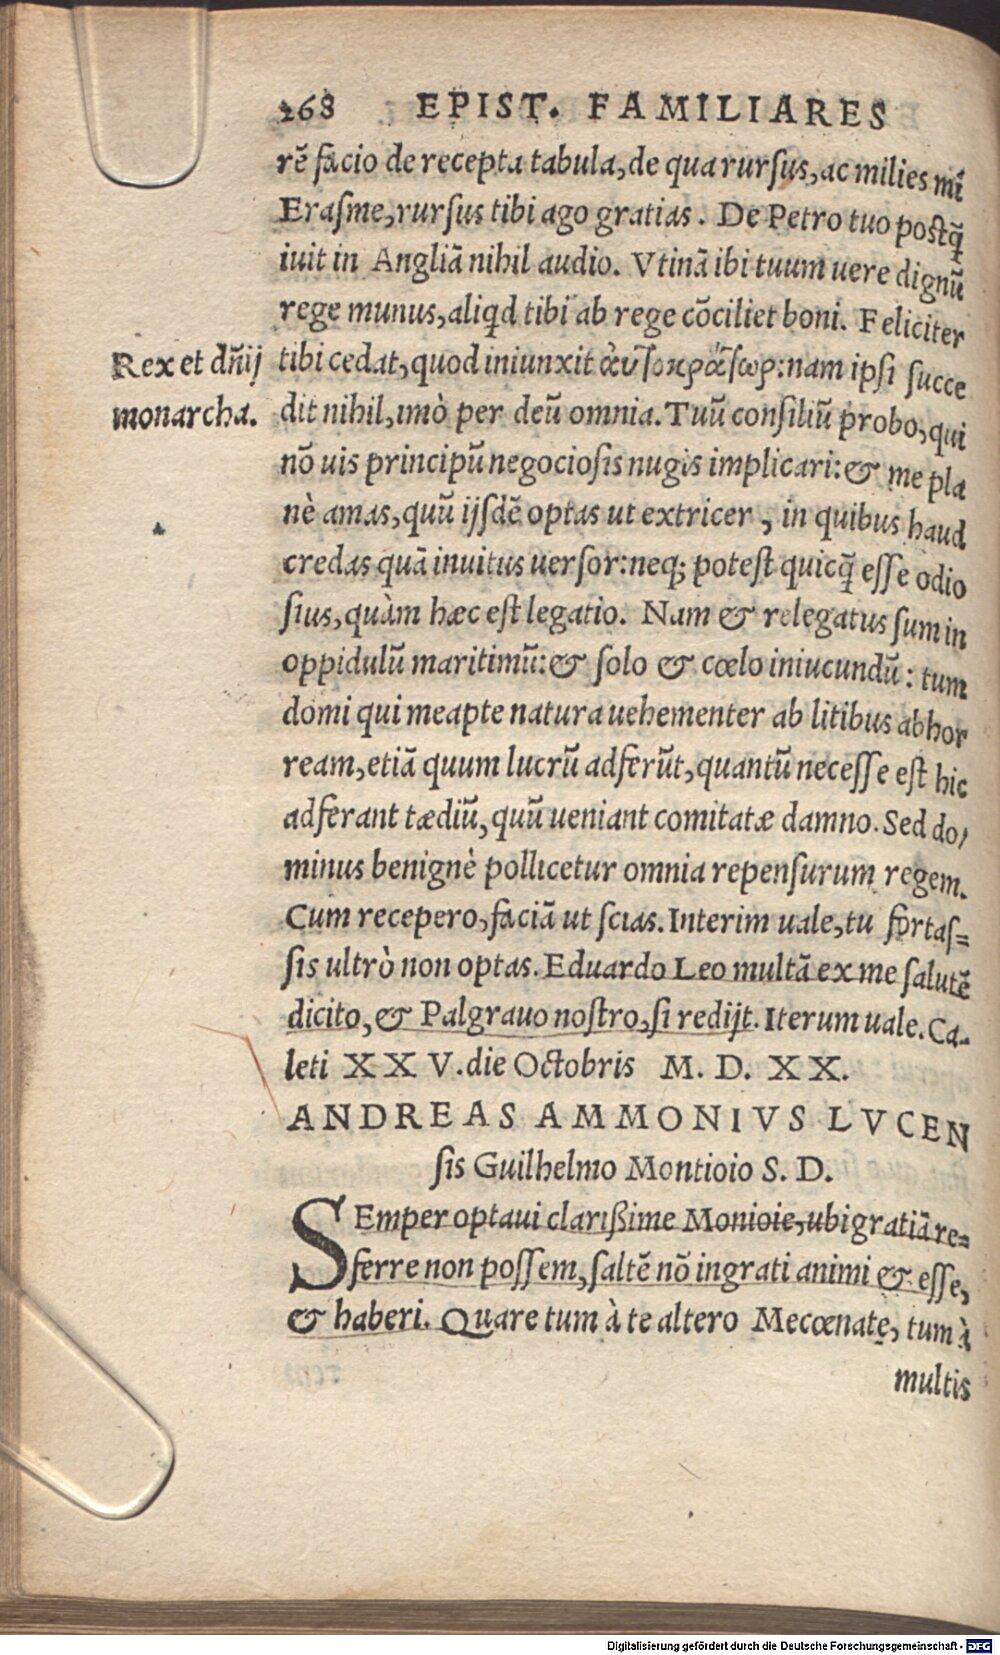 268 EPIST. FAMILIARES
rẽ facio de recepta tabula, de qua rursus, ac milies mi
Erasme, rursus tibi ago gratias. De Petro tuo postq̃
iuit in Angliã nihil audio. Vtinã ibi tuum uere dignũ
rege munus, aliqd tibi ab rege cõciliet boni. Feliciter
Rex et dñij
monarcha.
tibi cedat, quod iniunxit αὐτοκράτωρ: nam ipsi succe
dit nihil, imò per deũ omnia. Tuũ consiliũ probo, qui
nõ uis principũ negociosis nugis implicari: & me pla
nè amas, quũ ijsdẽ optas ut extricer, in quibus haud
credas quã inuitus uersor: neq; potest quicq̃ esse odio
sius, quàm hæc est legatio. Nam & relegatus sum in
oppidulũ maritimũ: & solo & cœlo iniucundũ: tum
domi qui meapte natura uehementer ab litibus abhor
ream, etiã quum lucrũ adferũt, quantũ necesse est hic
adferant tædiũ, quũ ueniant comitatæ damno. Sed do/
minus benignè pollicetur omnia repensurum regem.
Cum recepero, faciã ut scias. Interim uale, tu fortas=
sis ultrò non optas. Eduardo Leo multã ex me salutẽ
dicito, & Palgrauo nostro, si redijt. Iterum uale. Ca-
leti XXV. die Octobris M. D. XX.
ANDREAS AMMONIVS LVCEN
sis Guilhelmo Montioio S. D.
SEmper optaui clarißime Monioie, ubi gratiã re=
ferre non possem, saltẽ nõ ingrati animi & esse,
& haberi. Quare tum à te altero Mecœnate, tum à
multis
Digitalisierung gefördert durch die Deutsche Forschungsgemeinschaft - DFG